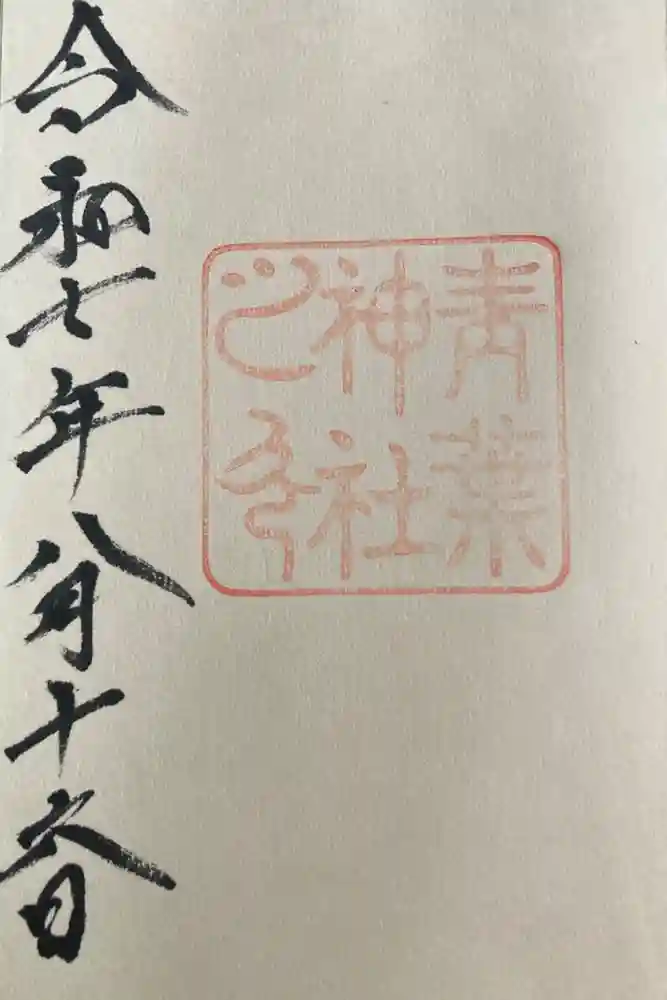 青葉
神社
之印
令和七年八月十六日